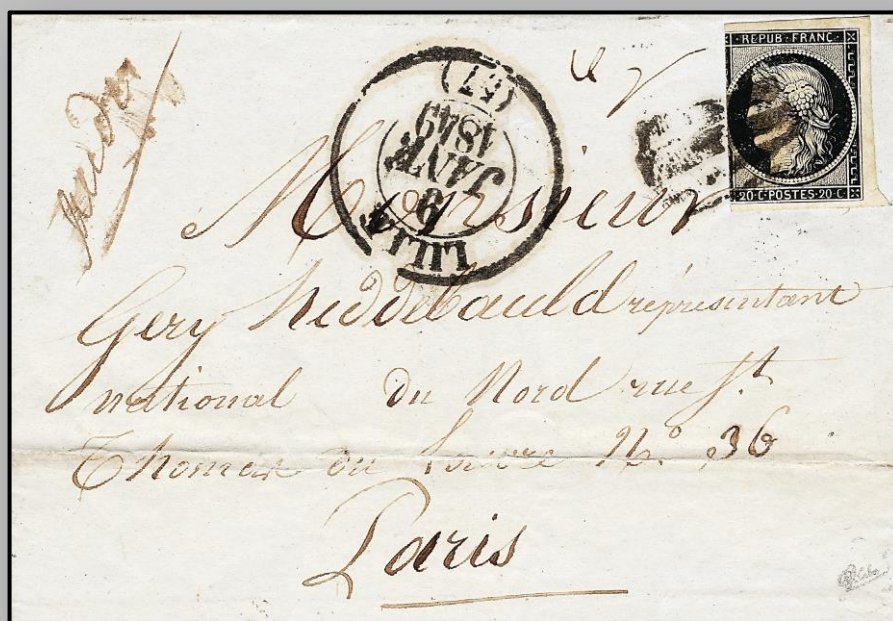 REPUB·FRANC·
20·C·POSTES·20·C
LILLE
9
JANV.
1849
(57)
Monsieur
Gery Heddebauld représentant
national du Nord rue St
Thomas du Louvre N.o 36
Paris